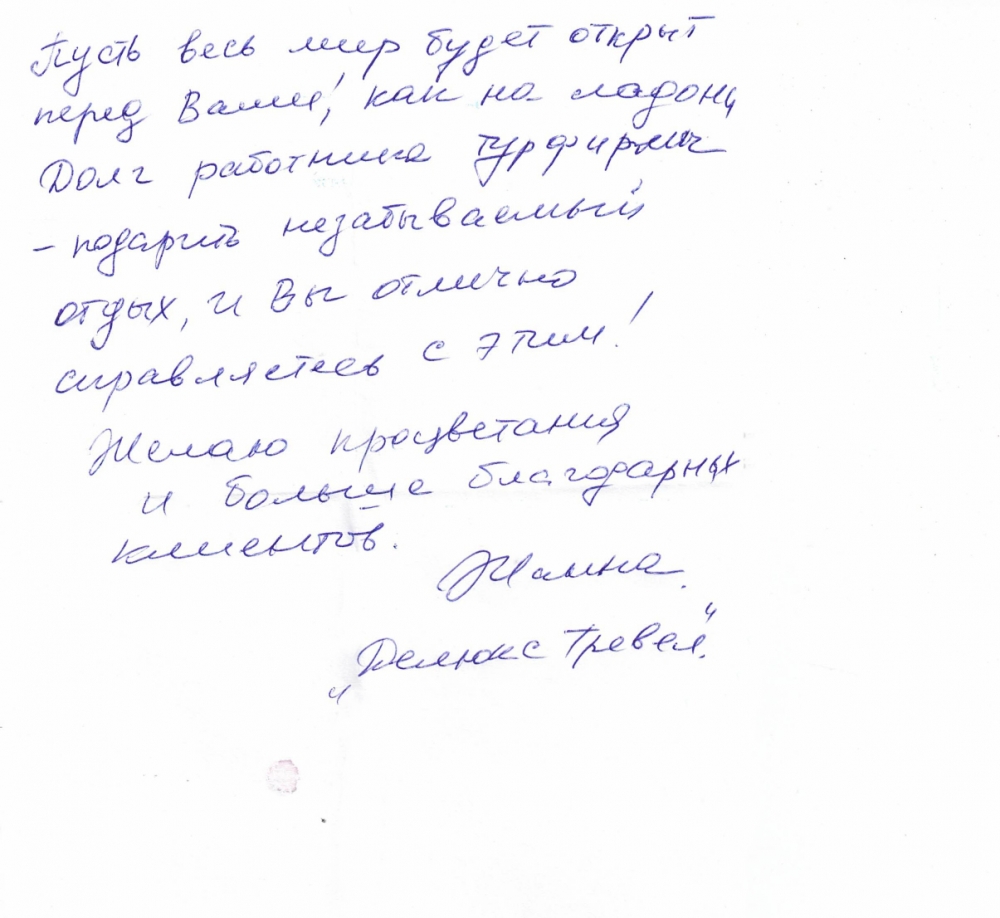 Пусть весь мир будет открыт
перед Вами!, как на ладони
Долг работника турфирмы
- подарить незабываемый
отдых, и Вы отлично
справляетесь с этим!
Желаю процветания
и больше благодарных
клиентов.
Жанна.
„Делюкс Тревел."